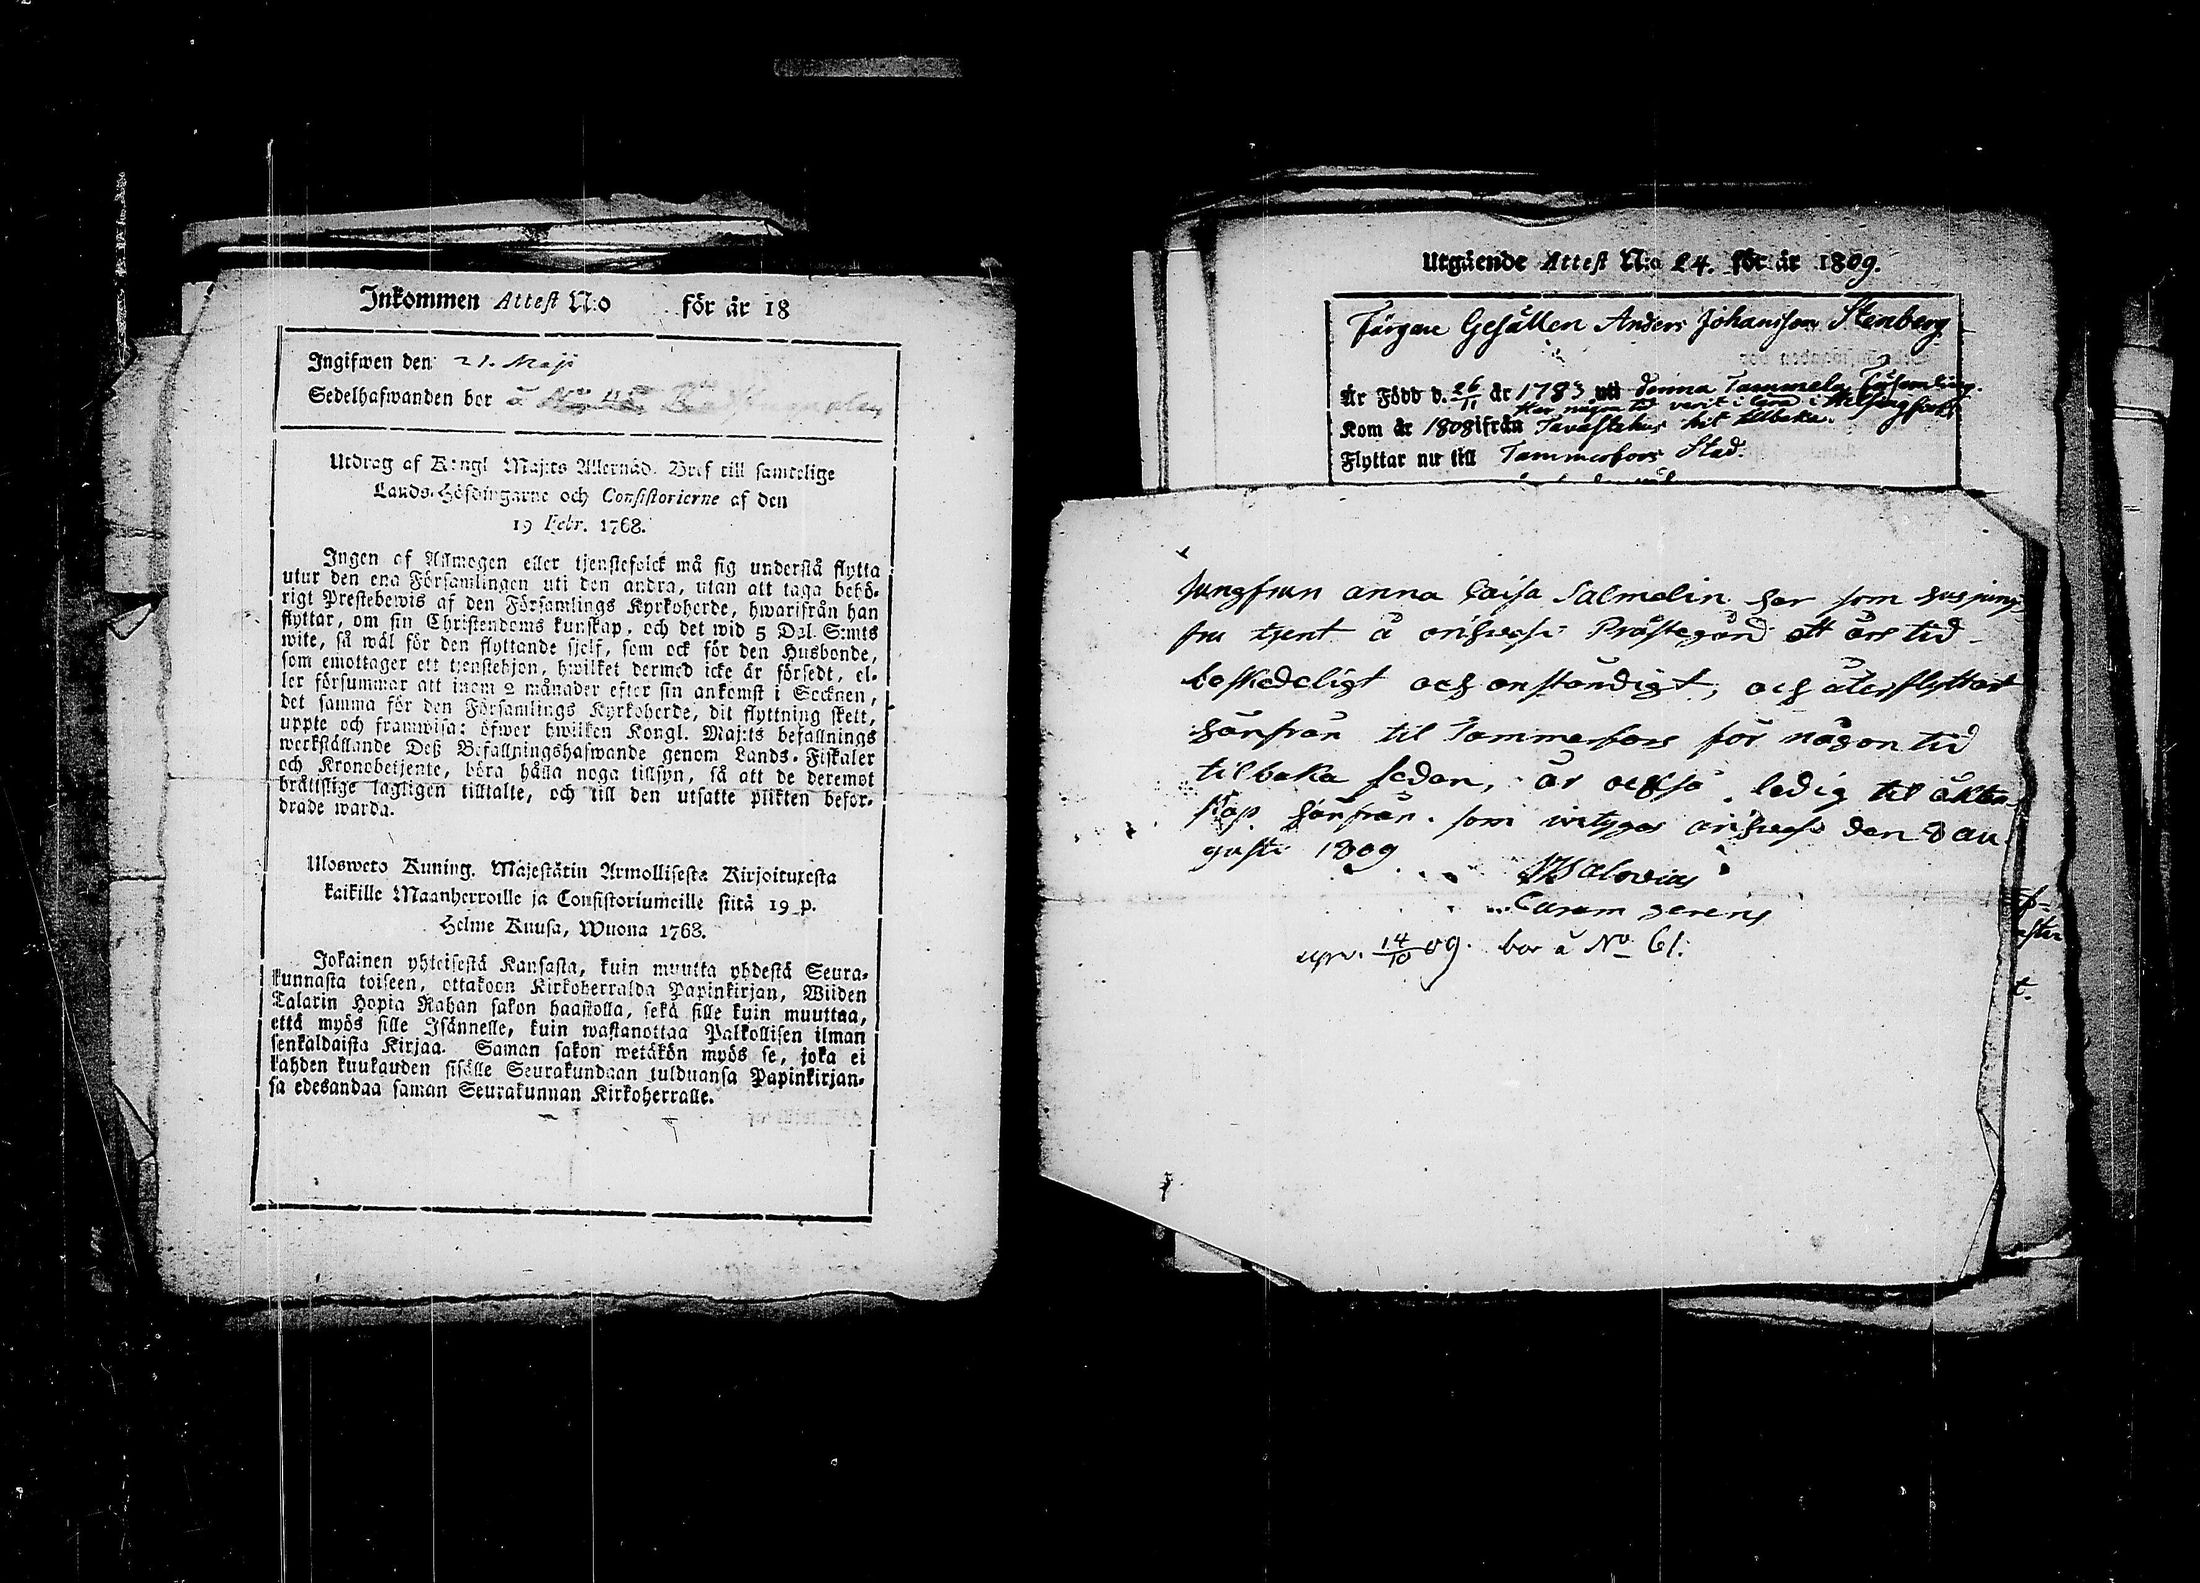 Inkommen Attest N:o för år 18
Ingifwen den 21. Maji
Sedelhafwanden bor å
Utdrag af Kongl. Maj:ts Allernåd. Bref till samtelige
Lands-Höfdingarne och Consistorierne af den
19 Febr. 1768.
Ingen af Allmogen eller tjenstefolck må sig understå flytta
utur den ena Församlingen uti den andra, utan att taga behö-
rigt Prestebewis af den Församlings Kyrkoherde, hwarifrån han
flyttar, om sin Christendoms kunskap, och det wid 5 Dal. S:mts
wite, så wäl för den flyttande sjelf, som ock för den Husbonde,
som emottager ett tjenstehjon, hwilket dermed icke är försedt, el-
ler försummar att inom 2 månader efter sin ankomst i Socknen,
det samma för den Församlings Kyrkoherde, dit flyttning skett,
uppte och framwisa: öfwer hwilken Kongl. Maj:ts befallnings
werkställande Deß Befallningshafwande genom Lands-Fiskaler
och Kronobetjente, böra hålla noga tillsyn, så att de deremot
bråttslige lagligen tilltalte, och till den utsatte plikten befor-
drade warda.
Ulosweto Kuning. Majestätin Armollisesta Kirjoituxesta
kaikille Maanherroille ja Consistoriumeille siitä 19 p.
Helme Kuusa, Wuona 1768.
Jokainen yhteisestä Kansasta, kuin muutta yhdestä Seura-
kunnasta toiseen, ottakoon Kirkoherralda Papinkirjan, Wiiden
Talarin Hopia Rahan sakon haastolla, sekä sille kuin muuttaa,
että myös sille Isännelle, kuin wastanottaa Palkollisen ilman
senkaldaista Kirjaa. Saman sakon wetäkön myös se, joka ei
kahden kuukauden sisälle Seurakundaan tulduansa Papinkirjan-
sa edesandaa saman Seurakunnan Kirkoherralle.
Utgående Attest N:o 24. för år 1809.
Färgare Gesällen Anders Johansson Stenberg
Är Född d. 26/11 år 1783 uti denna Tammela Församling.
Har någon tid varit i lära i Helsingfors
Kom år 1808 ifrån Tavastehus hit tillbaka.
Flyttar nu till Tammerfors Stad.
Jungfrun anna Caisa Salmelin har som husjung-
fru tjent å orihvesi Prästegård ett års tid
beskedeligt och anständigt, och återflyttar
härifrån til Tammerfors för någon tid
tilbaka sedan, är också ledig til äkten-
skap härifrån. som intygas orihvesi den 8 au-
gusti 1809
Curam gerens
14/10 09. bor å No 61.